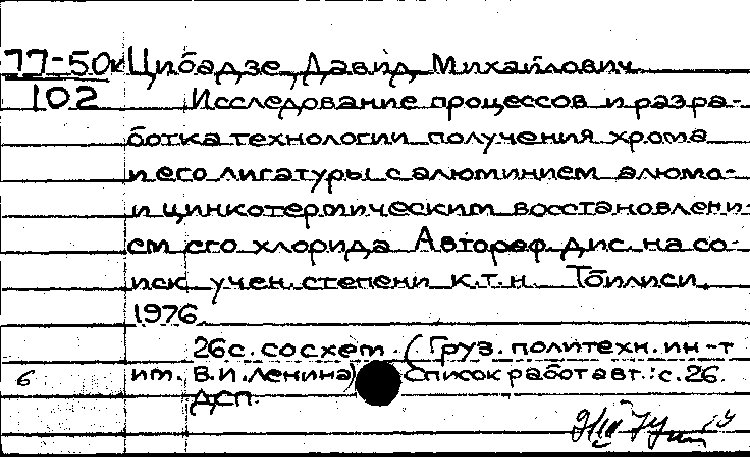 77-50к Цибадзе, Давид Михайлович
102 Исследование процессов и разра-
ботка технологии получения хрома
и его лигатуры с алюминием алюмо-
и цинкотермическим восстановлени-
ем его хлорида Автореф. дис. на со-
иск. учен. степени к.т.н. Тбилиси,
1976.
26с. со схем. (Груз. политехн. ин-т
6 им. В.И. Ленина) Список работ авт.: с.26.
ДСП.